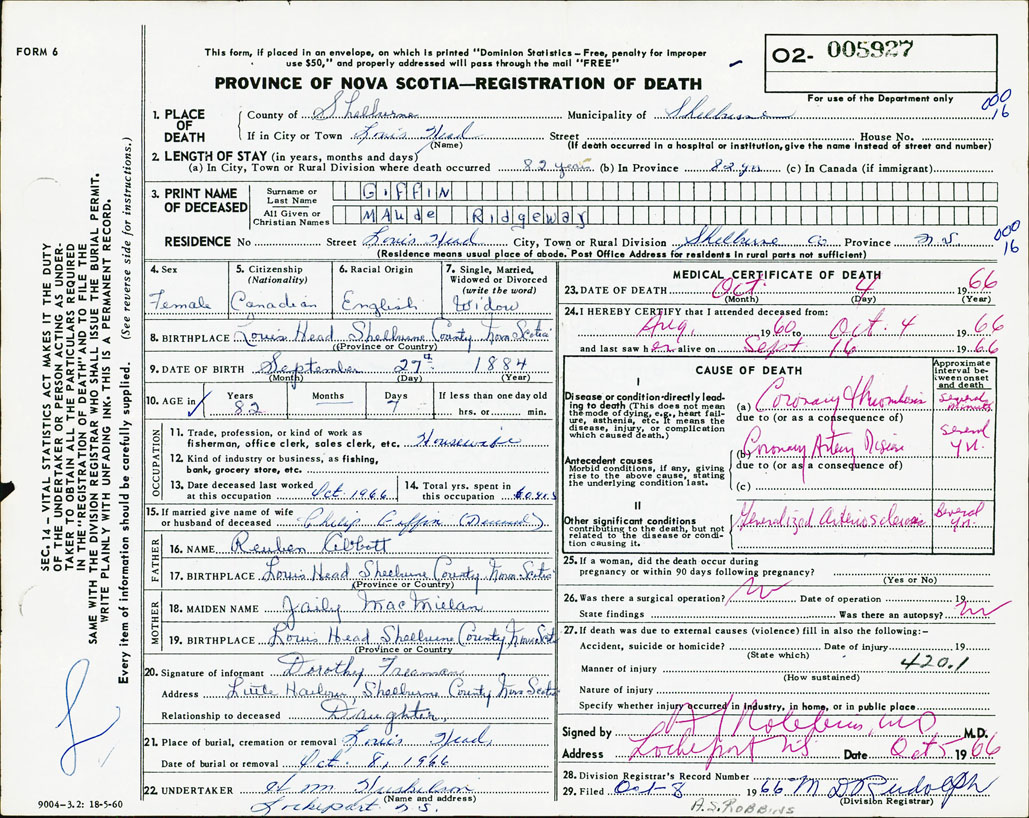 FORM 6
This form, if placed in an envelope, on which is printed "Dominion Statistics – Free, penalty for improper
use $50," and properly addressed will pass through the mail "FREE"
O2- 005927
For use of the Department only
PROVINCE OF NOVA SCOTIA—REGISTRATION OF DEATH
000
16
1. PLACE OF DEATH
County of Shelburne Municipality of Shelburne
If in City or Town Louis Head Street House No.
(Name) (If death occurred in a hospital or institution, give the name instead of street and number)
2. LENGTH OF STAY (in years, months and days)
(a) In City, Town or Rural Division where death occurred 82 years (b) In Province 82 yrs (c) In Canada (if immigrant)
3. PRINT NAME OF DECEASED
Surname or Last Name GIFFIN
All Given or Christian Names MAude Ridgeway
RESIDENCE No Street Louis Head City, Town or Rural Division Shelburne Co Province N.S
(Residence means usual place of abode. Post Office Address for residents in rural parts not sufficient)
000
16
4. Sex
Female
5. Citizenship
(Nationality)
Canadian
6. Racial Origin
English
7. Single, Married,
Widowed or Divorced
(write the word)
Widow
8. BIRTHPLACE Louis Head Shelburne County Nova Scotia
(Province or Country)
9. DATE OF BIRTH September 27th 1884
(Month) (Day) (Year)
10. AGE in
Years Months Days If less than one day old
82 7 hrs. or min.
OCCUPATION
11. Trade, profession, or kind of work as
fisherman, office clerk, sales clerk, etc. Housewife
12. Kind of industry or business, as fishing,
bank, grocery store, etc.
13. Date deceased last worked
at this occupation Oct. 1966
14. Total yrs. spent in
this occupation 60 yrs
15. If married give name of wife
or husband of deceased Philip Giffin (Deceased)
FATHER
16. NAME Reuben Abbott
17. BIRTHPLACE Louis Head Shelburne County Nova Scotia
(Province or Country)
MOTHER
18. MAIDEN NAME
19. BIRTHPLACE Louis Head Shelburne County Nova Scot
(Province or Country)
20. Signature of informant Dorothy Freeman
Address Little Harbour, Shelburne County Nova Scotia
Relationship to deceased Daughter,
21. Place of burial, cremation or removal Louis Head,
Date of burial or removal Oct. 8, 1966
22. UNDERTAKER
(Name and address)
Lockeport N.S.
MEDICAL CERTIFICATE OF DEATH
23. DATE OF DEATH Oct. 4 1966
(Month) (Day) (Year)
24. I HEREBY CERTIFY that I attended deceased from:
Aug. 1960 to Oct. 4 1966
and last saw her alive on Sept 16 1966
CAUSE OF DEATH
Approximate
interval between onset
and death
I
Disease or condition directly leading to death (This does not mean
the mode of dying, e.g., heart failure, asthenia, etc. It means the
disease, injury, or complication
which caused death.)
(a) Coronary thrombosis several minutes
due to (or as a consequence of)
Antecedent causes
Morbid conditions, if any, giving
rise to the above cause, stating
the underlying condition last.
(b) Coronary Artery Disease several yr.
due to (or as a consequence of)
(c)
II
Other significant conditions
contributing to the death, but not
related to the disease or condition causing it.
Generalized Arteriosclerosis Several yr.
25. If a woman, did the death occur during
pregnancy or within 90 days following pregnancy?
(Yes or No)
26. Was there a surgical operation? no Date of operation 19
State findings Was there an autopsy? no
27. If death was due to external causes (violence) fill in also the following:–
Accident, suicide or homicide? Date of injury 19
(State which)
Manner of injury 420.1
(How sustained)
Nature of injury
Specify whether injury occurred in industry, in home, or in public place
Signed by A S Robbins, MD M.D.
Address Lockeport NS Date Oct 5 1966
28. Division Registrar's Record Number
29. Filed Oct-8 1966 M D Rudolph
(Division Registrar)
A.S. ROBBINS
SEC. 14 – VITAL STATISTICS ACT MAKES IT THE DUTY
OF THE UNDERTAKER OR PERSON ACTING AS UNDERTAKER TO OBTAIN ALL THE PARTICULARS REQUIRED
IN THE "REGISTRATION OF DEATH" AND TO FILE THE
SAME WITH THE DIVISION REGISTRAR WHO SHALL ISSUE THE BURIAL PERMIT.
WRITE PLAINLY WITH UNFADING INK. THIS IS A PERMANENT RECORD.
Every item of information should be carefully supplied. (See reverse side for instructions.)
9004–3.2: 18-5-60